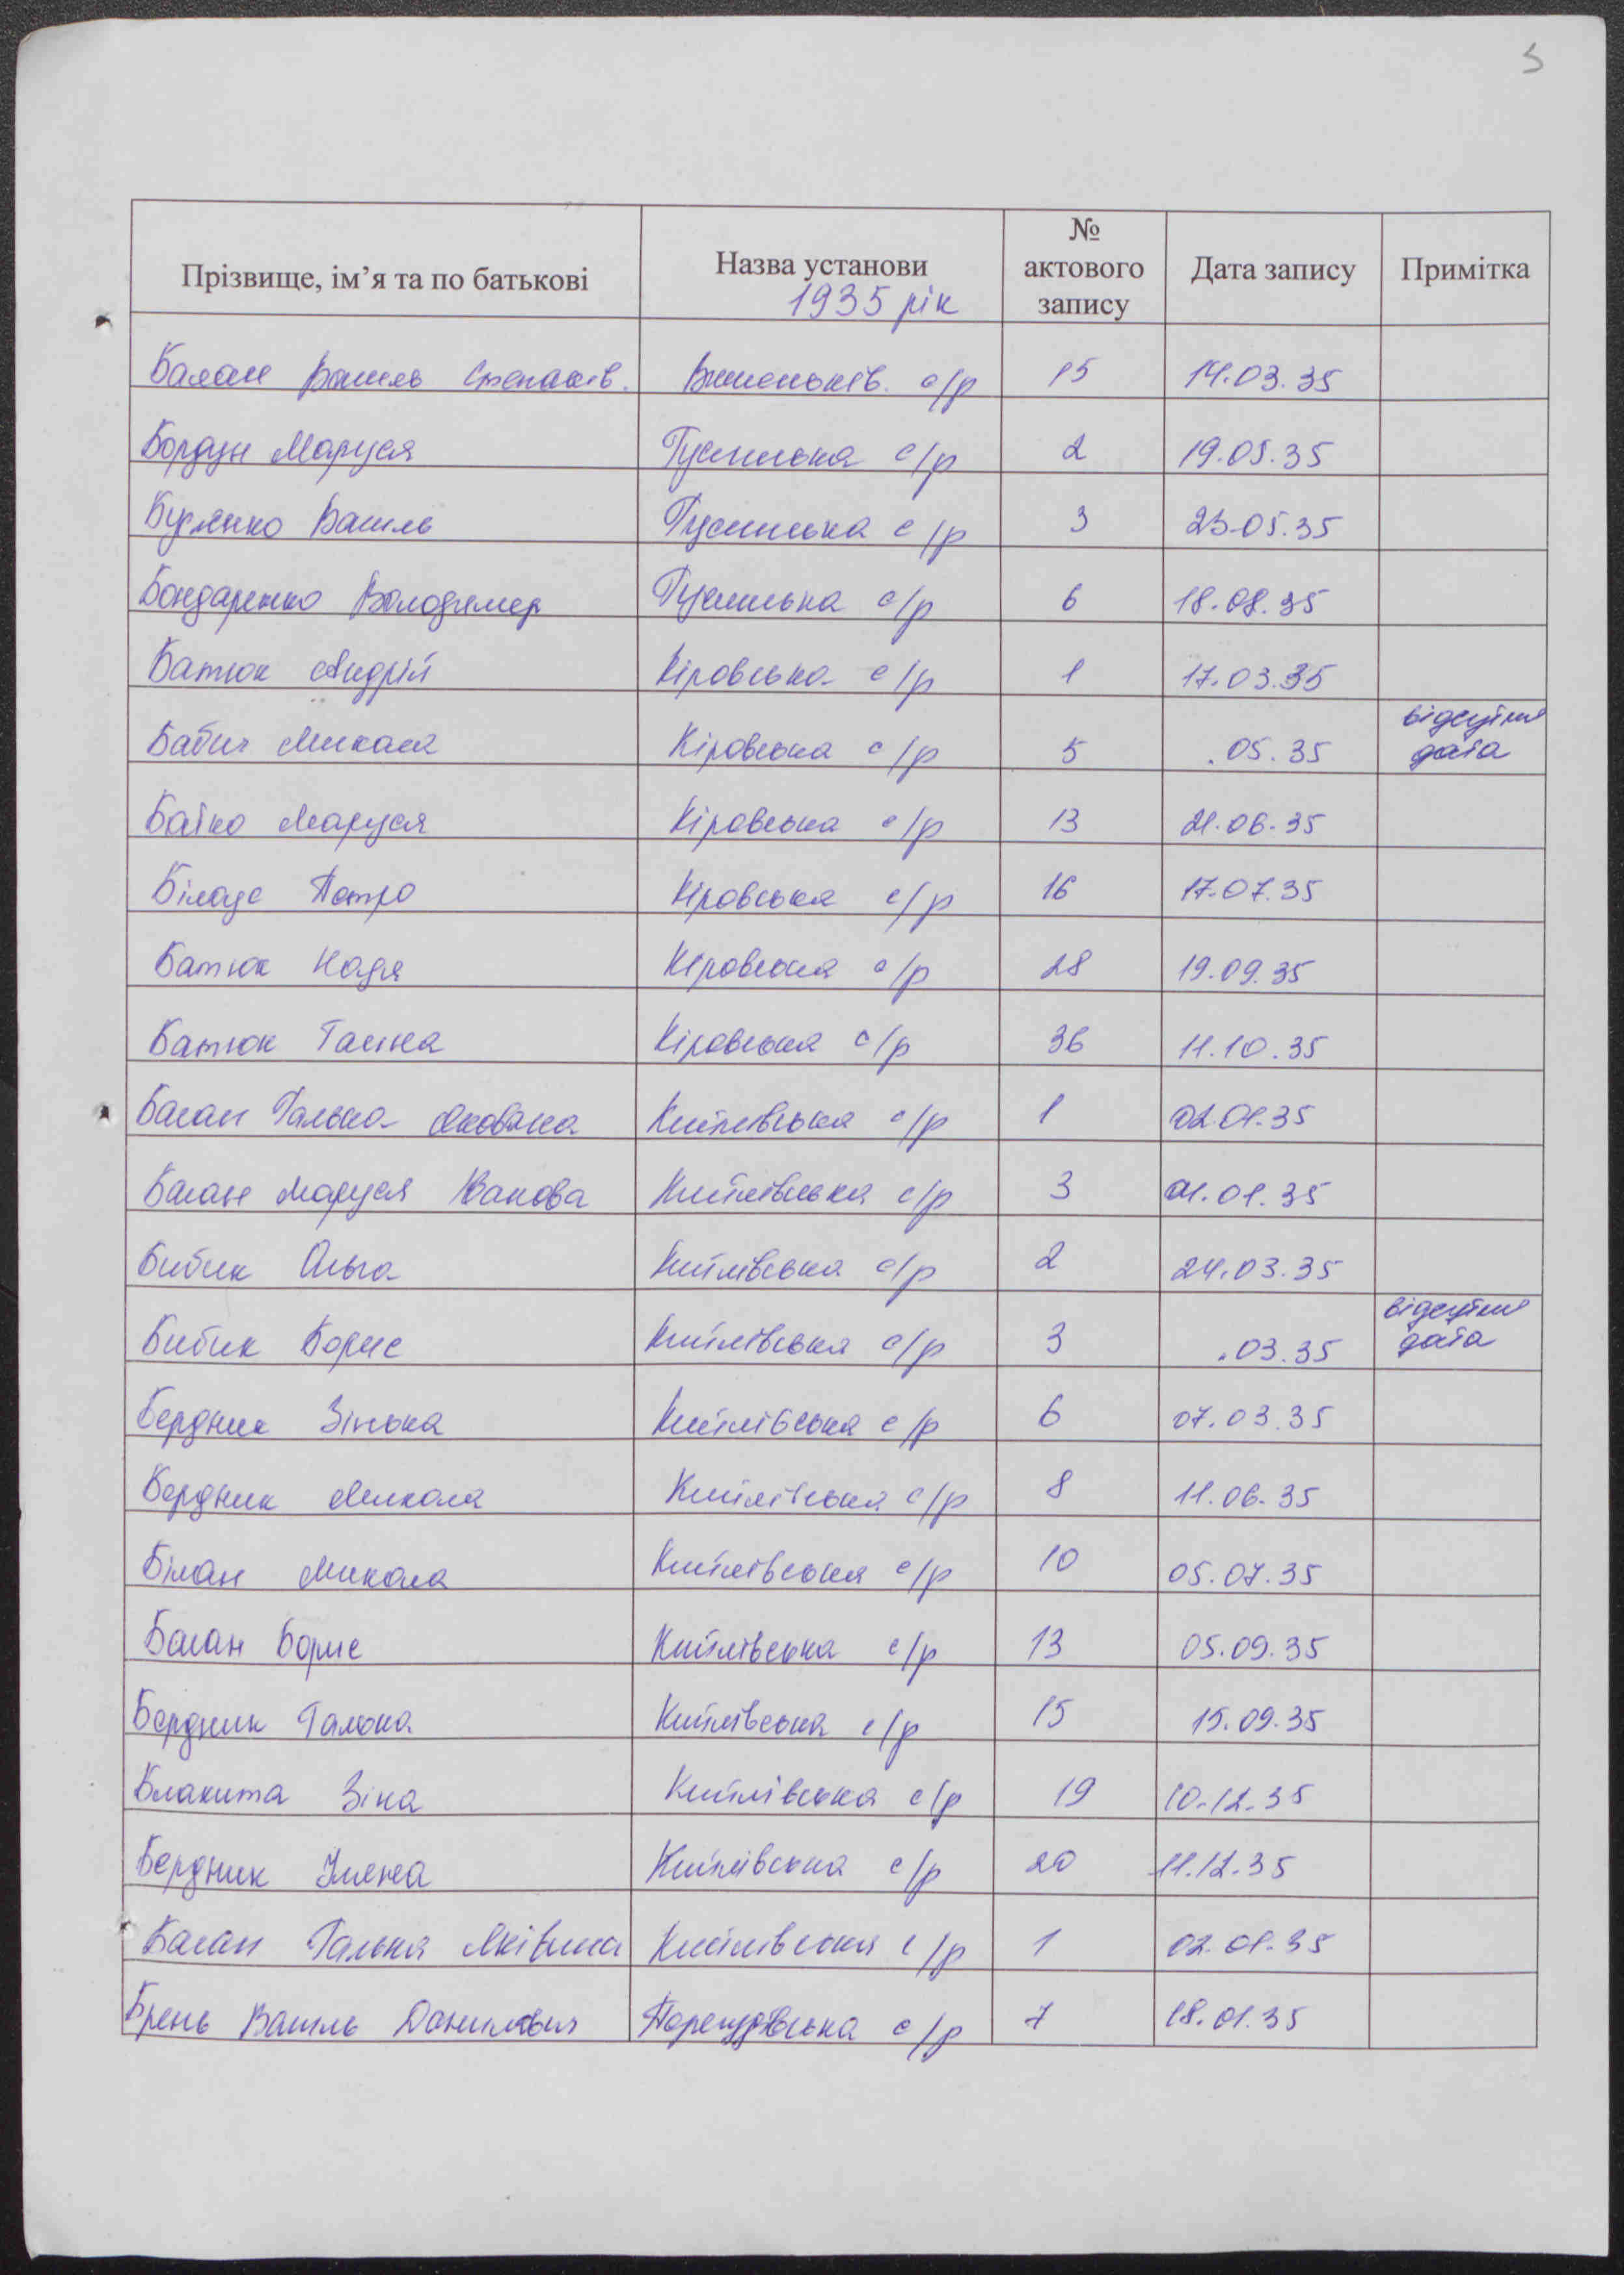 3
Прізвище, ім’я та по батькові Назва установи 1935 рік № актового запису Дата запису Примітка
Балан Василь Степанів. Вишеньків. с/р 15 14.03.35
Бордун Маруся Гусинська с/р 2 19.05.35
Василь Гусинська с/р 3 23.05.35
Бондаренко Володимер Гусинська с/р 6 18.08.35
Батюк Андрій Кіровська с/р 1 17.03.35
Бабич Микола Кіровська с/р 5 .05.35 відсутня дата
Байко Маруся Кіровська с/р 13 21.06.35
Петро Кіровська с/р 16 17.07.35
Батюк Надя Кіровська с/р 28 19.09.35
Батюк Ганна Кіровська с/р 36 11.10.35
Баган Галька Яковвна Кийлівська с/р 1 02.01.35
Баган Маруся Іванова Кийлівська с/р 3 01.01.35
Бибик Ольга Кийлівська с/р 2 24.03.35
Бибик Борис Кийлівська с/р 3 .03.35 відсутня дата
Бердник Зінька Кийлівська с/р 6 07.03.35
Бердник Микола Кийлівська с/р 8 11.06.35
Білан Микола Кийлівська с/р 10 05.07.35
Баган Борис Кийлівська с/р 13 05.09.35
Бердник Галька Кийлівська с/р 15 15.09.35
Блакита Зіна Кийлівська с/р 19 10.12.35
Бердник Уляна Кийлівська с/р 20 11.12.35
Баган Галька Яківна Кийлівська с/р 1 02.01.35
Брень Василь Данилович с/р 7 18.01.35